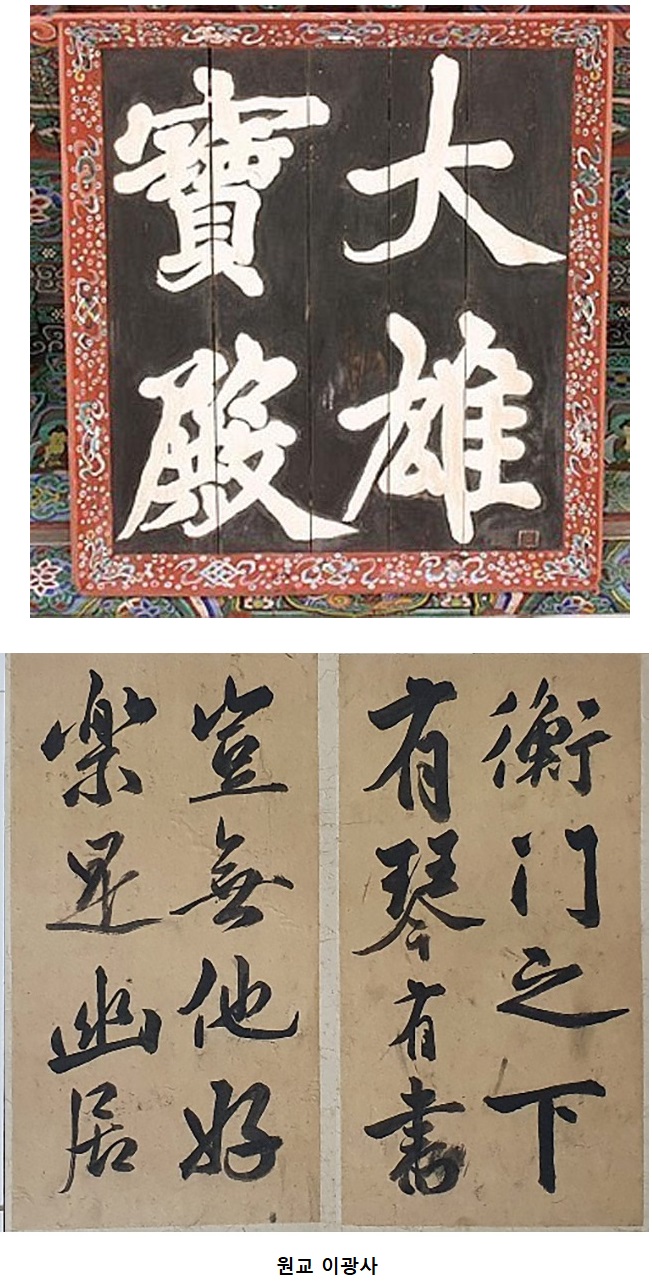 大雄
寶殿
衡門之下
有琴有書
豈無他好
樂是幽居
원교 이광사